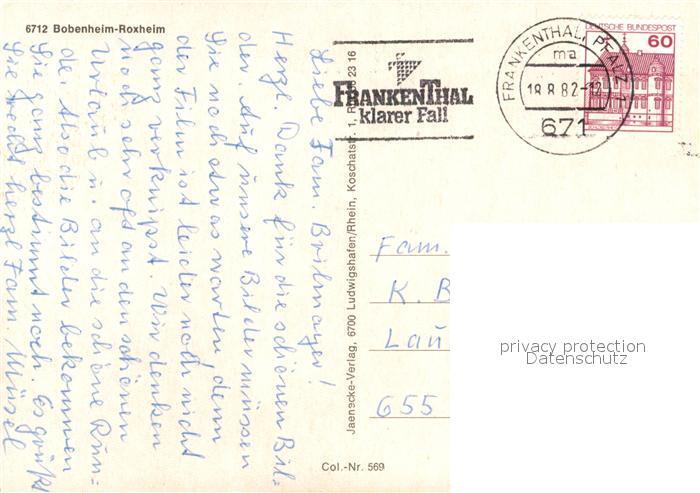 6712 Bobenheim-Roxheim
Liebe Fam. Brilmayer!
Herzl. Dank für die schönen Bil-
der. Auf unsere Bilder müssen
Sie noch etwas warten, denn
der Film ist leider noch nicht
ganz verknipst. Wir denken
noch sehr oft an den schönen
Urlaub u. an die schöne Run-
de. Also die Bilder bekommen
Sie ganz bestimmt noch. Es grüßt
Sie recht herzl. Fam. Müsel
Jaenecke-Verlag, 6700 Ludwigshafen/Rhein, Koschatstr. 1, 23 16
FRANKENTHAL
klarer Fall
FRANKENTHAL, PFALZ 1
ma
18.8.82-12
671
DEUTSCHE BUNDESPOST
60
Fam.
K. B
Lau
655
privacy protection
Datenschutz
Col.-Nr. 569